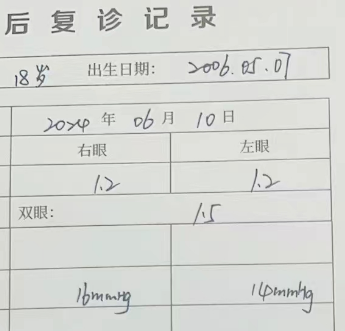 后复诊记录
18岁 出生日期: 2006.05.07
2024 年 06 月 10 日
右眼 左眼
1.2 1.2
双眼: 1.5
16mmHg 14mmHg